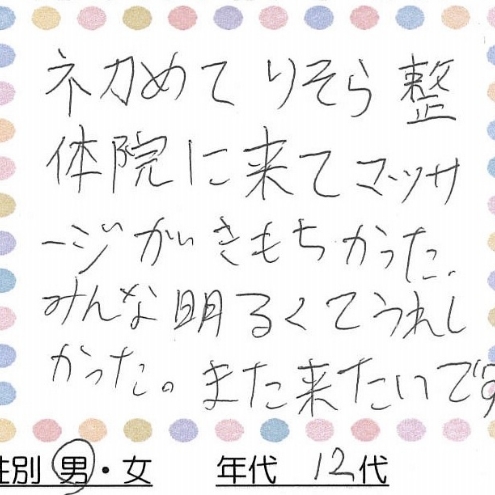 初めてりそら整
体院に来てマッサ
ージがいきもちかった。
みんな明るくてうれし
かった。また来たいです
性別 男・女 年代 12代